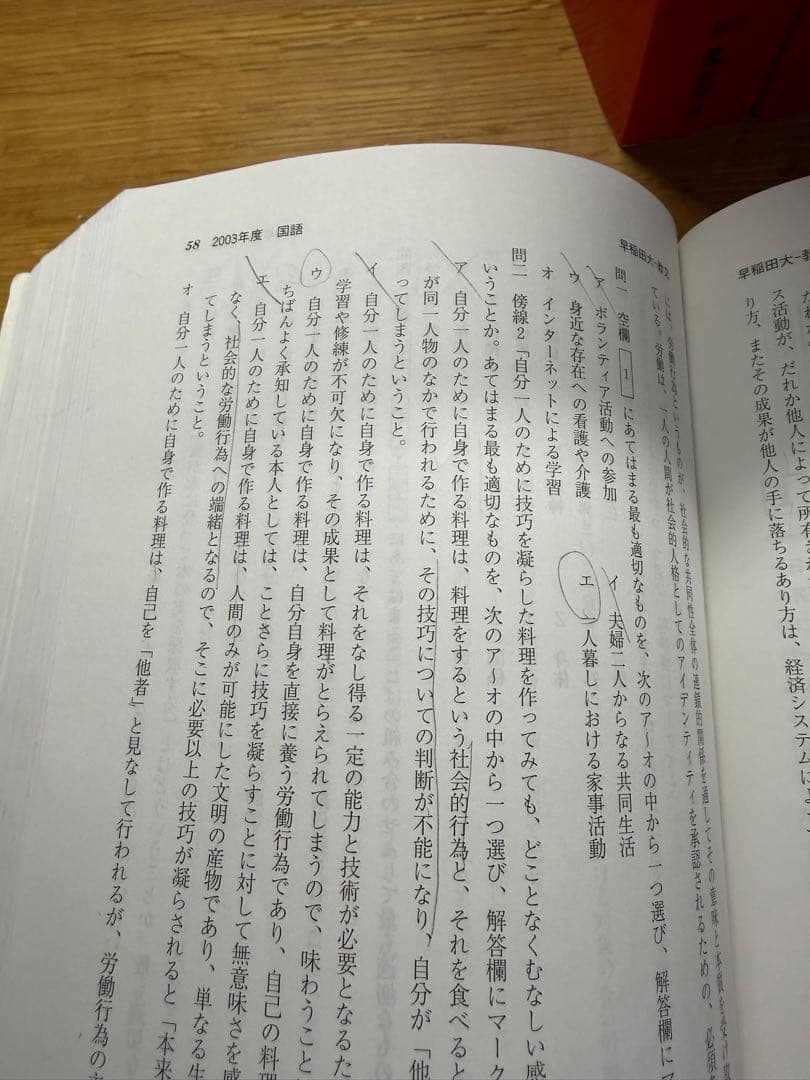 58 2003年度 国語
早稲田大-教文
早稲田大-教
ス活動が、だれか他人によって所有さ
り方、またその成果が他人の手に落ちるあり方は、経済システムに
には、労働行為というものが、社会的な共同性全体の連鎖的関係を通してその意味と本質を受け取
ている。労働は、一人の人間が社会的人格としてのアイデンティティを承認されるための、必須
問一 空欄 1 にあてはまる最も適切なものを、次のア〜オの中から一つ選び、解答欄にマ
ア ボランティア活動への参加 イ 夫婦二人からなる共同生活
ウ 身近な存在への看護や介護 エ 一人暮しにおける家事活動
オ インターネットによる学習
問二 傍線2「自分一人のために技巧を凝らした料理を作ってみても、どことなくむなしい感
いうことか。あてはまる最も適切なものを、次のア〜オの中から一つ選び、解答欄にマーク
ア 自分一人のために自身で作る料理は、料理をするという社会的行為と、それを食べると
が同一人物のなかで行われるために、その技巧についての判断が不能になり、自分が「他
ってしまうということ。
イ 自分一人のために自身で作る料理は、それをなし得る一定の能力と技術が必要となるた
学習や修練が不可欠になり、その成果として料理がとらえられてしまうので、味わうこと
ウ 自分一人のために自身で作る料理は、自分自身を直接に養う労働行為であり、自己の料理
ちばんよく承知している本人としては、ことさらに技巧を凝らすことに対して無意味さを感
エ 自分一人のために自身で作る料理は、人間のみが可能にした文明の産物であり、単なる生
なく、社会的な労働行為への端緒となるので、そこに必要以上の技巧が凝らされると「本来
てしまうということ。
オ 自分一人のために自身で作る料理は、自己を「他者」と見なして行われるが、労働行為の